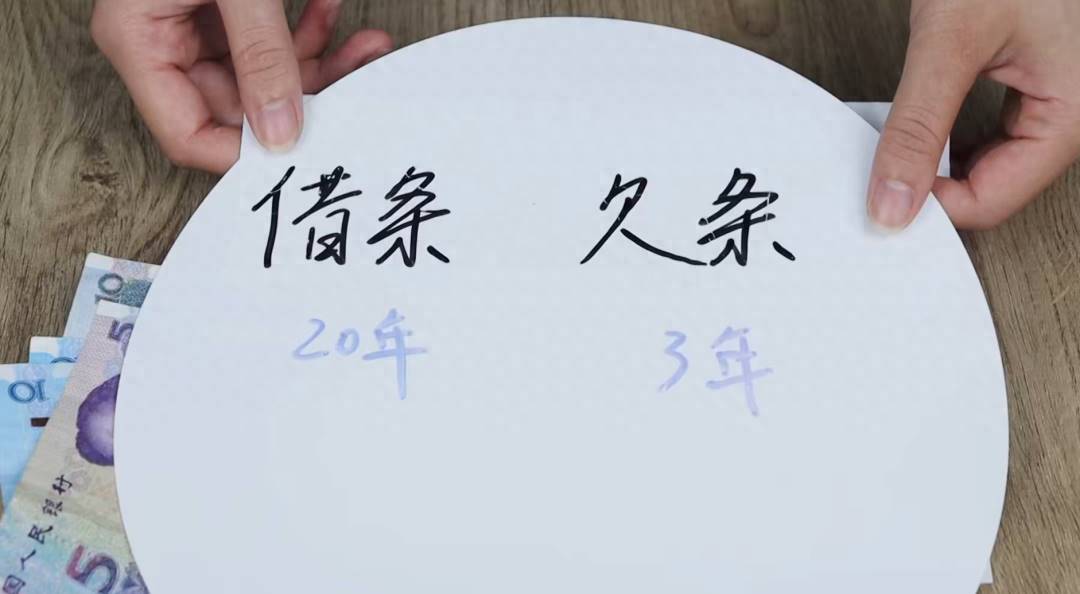 借条 欠条
20年 3年
10
5
10
国人民银行
5